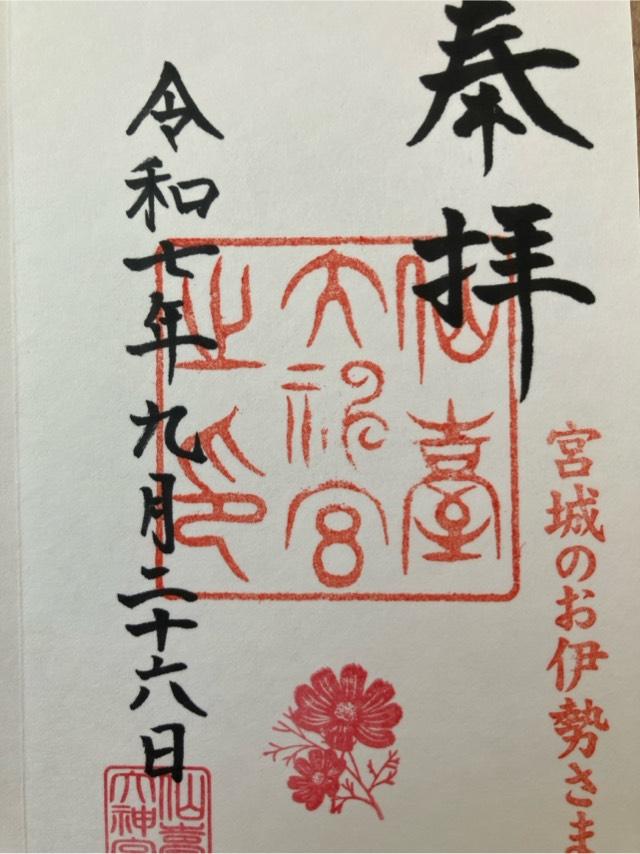 奉拝
宮城のお伊勢さま
仙臺
大神宮
之印
令和七年九月二十六日
仙臺
大神宮